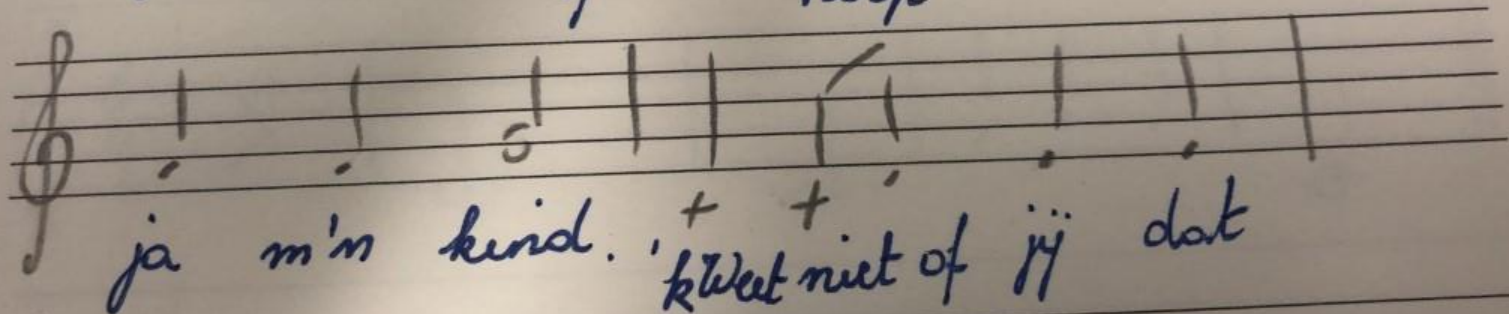 ja m'n kind. 'k Weet niet of jij dat